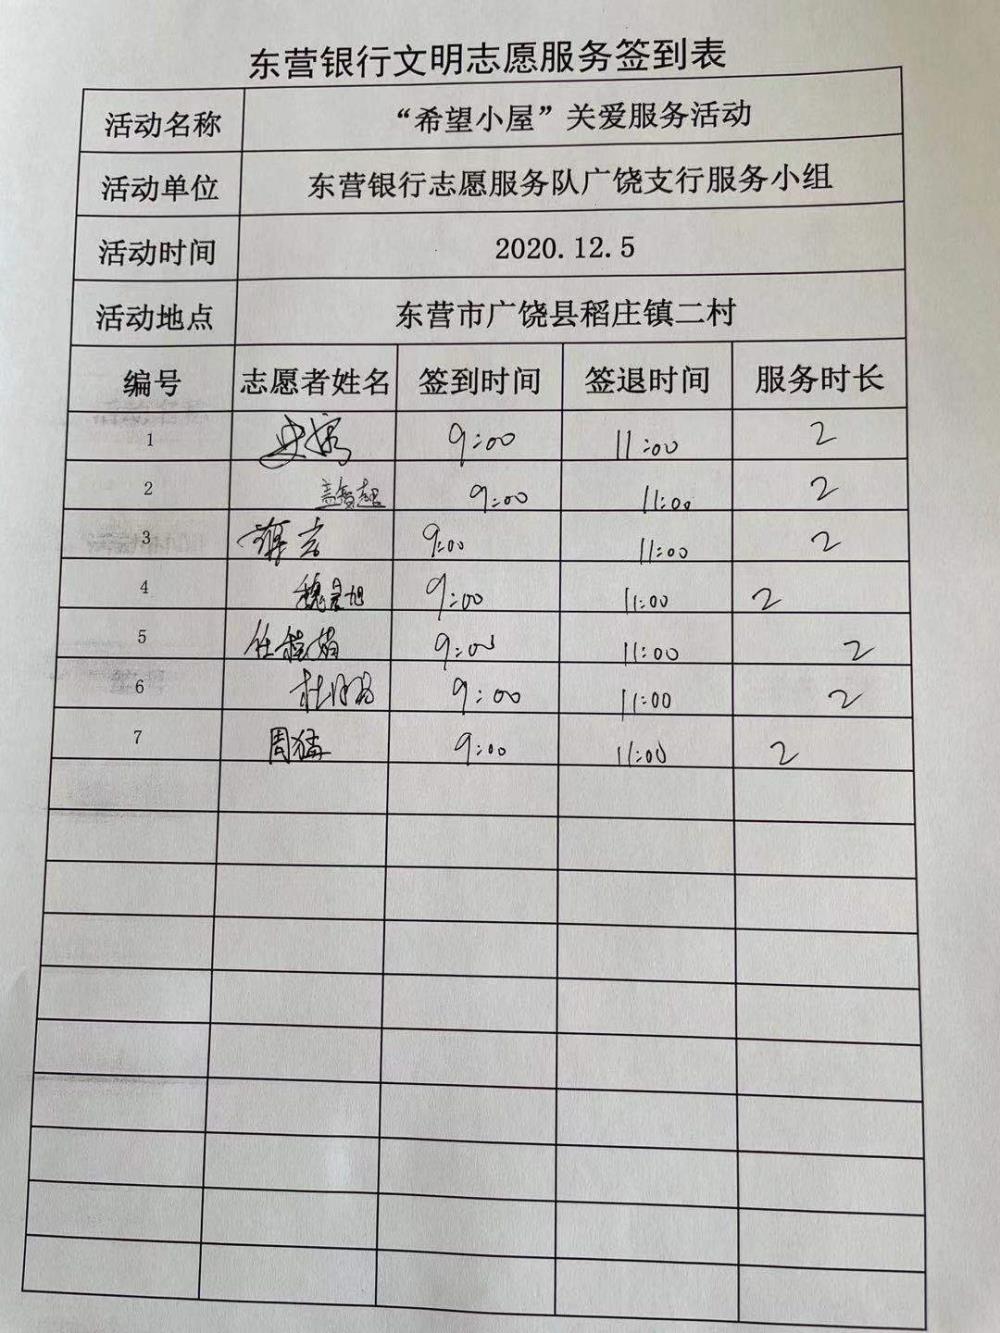 东营银行文明志愿服务签到表
活动名称 “希望小屋”关爱服务活动
活动单位 东营银行志愿服务队广饶支行服务小组
活动时间 2020.12.5
活动地点 东营市广饶县稻庄镇二村
编号 志愿者姓名 签到时间 签退时间 服务时长
1 9:00 11:00 2
2 9:00 11:00 2
3 9:00 11:00 2
4 9:00 11:00 2
5 9:00 11:00 2
6 9:00 11:00 2
7 周猛 9:00 11:00 2